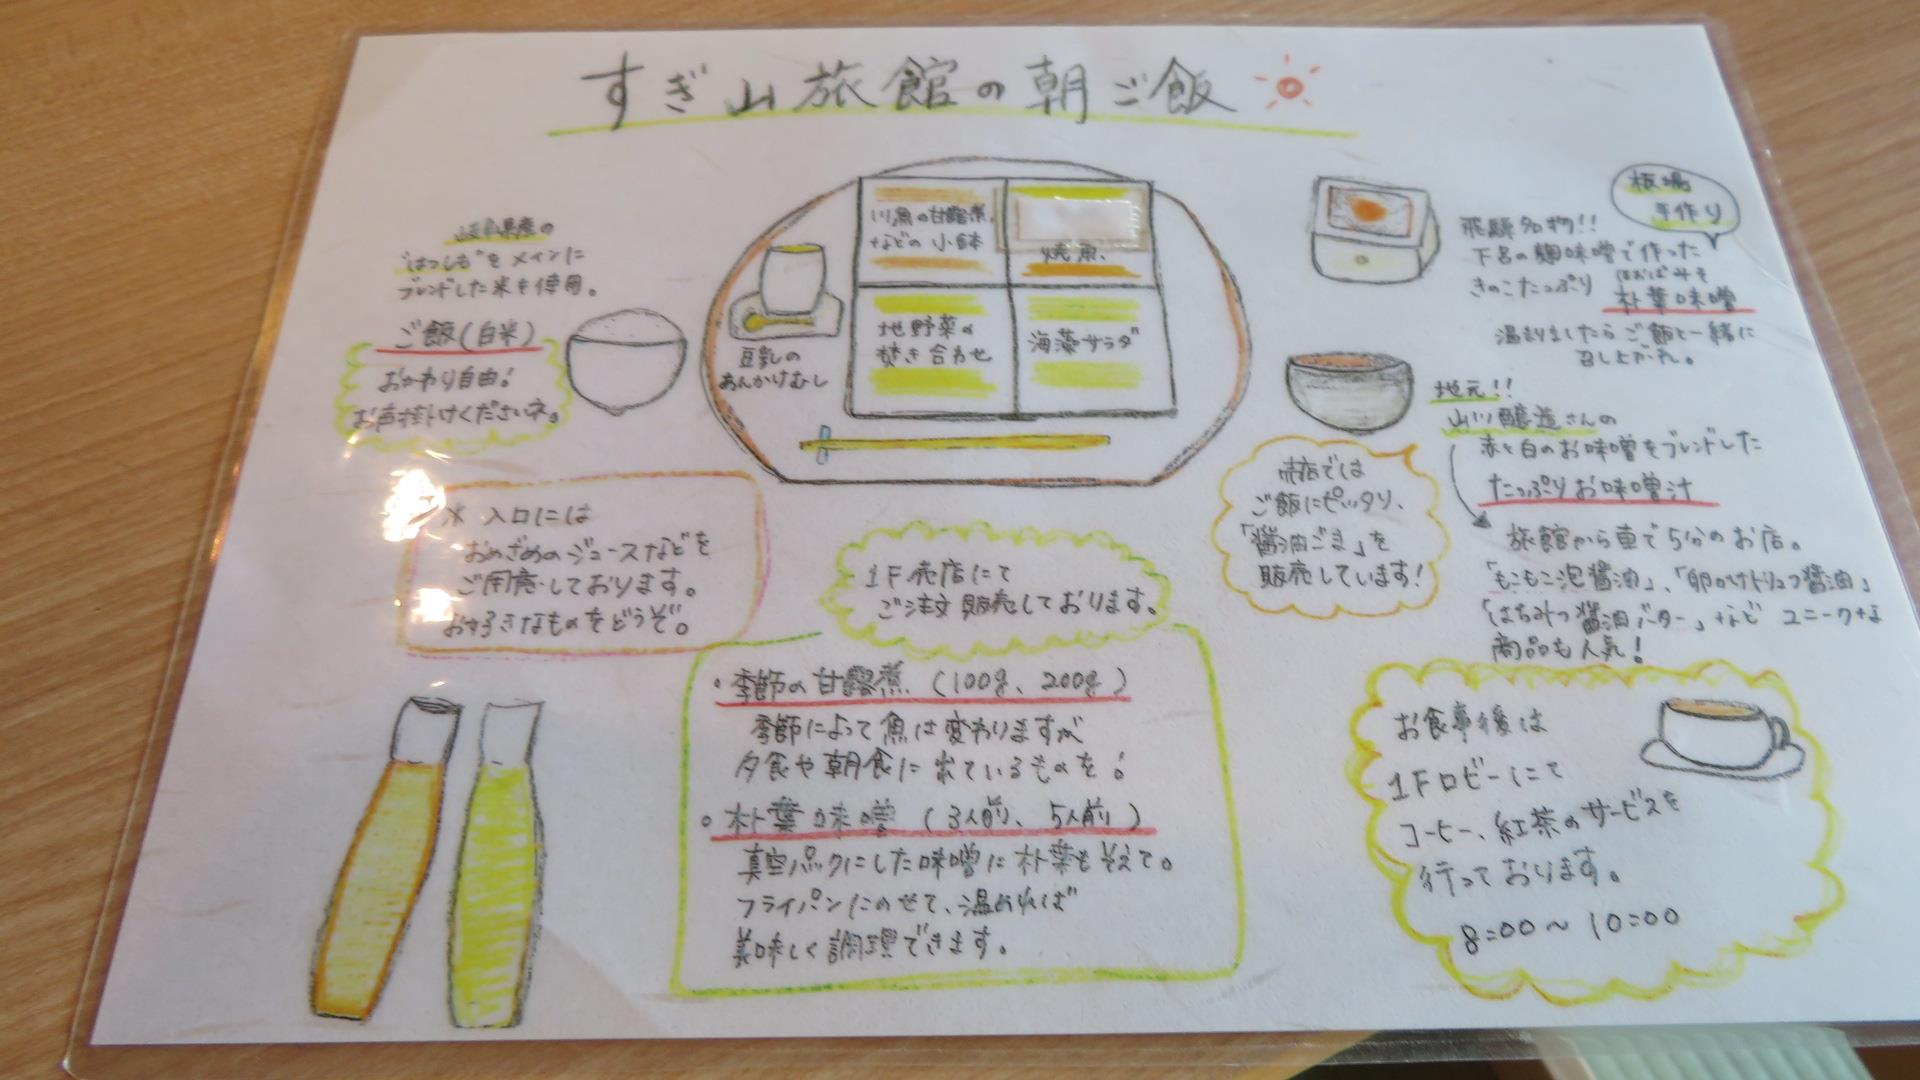 すぎ山旅館の朝ご飯
岐阜県産の
"はつしも"をメインに
ブレンドした米を使用。
ご飯(白米)
おかわり自由!
お声掛けくださいネ。
川魚の甘露煮
などの小鉢
焼魚
地野菜の
焚き合わせ
海藻サラダ
豆乳の
あんかけむし
板場
手作り
飛騨名物!!
下呂の麹味噌で作った
きのこたっぷり
ほおばみそ
朴葉味噌
温まりましたらご飯と一緒に
召し上がれ。
地元!!
山川醸造さんの
赤と白のお味噌をブレンドした
たっぷりお味噌汁
旅館から車で5分のお店。
「もこもこ泡醤油」、「卵かけトリュフ醤油」
「はちみつ醤油バター」などユニークな
商品も人気!
売店では
ご飯にピッタリ、
「醤油ごま」を
販売しています!
※入口には
おめざめのジュースなどを
ご用意しております。
お好きなものをどうぞ。
1F売店にて
ご注文販売しております。
・季節の甘露煮(100g、200g)
季節によって魚は変わりますが
夕食や朝食に出ているものを!
・朴葉味噌(3人前、5人前)
真空パックにした味噌に朴葉もそえて。
フライパンにのせて、温めれば
美味しく調理できます。
お食事後は
1Fロビーにて
コーヒー、紅茶のサービスを
行っております。
8:00〜10:00